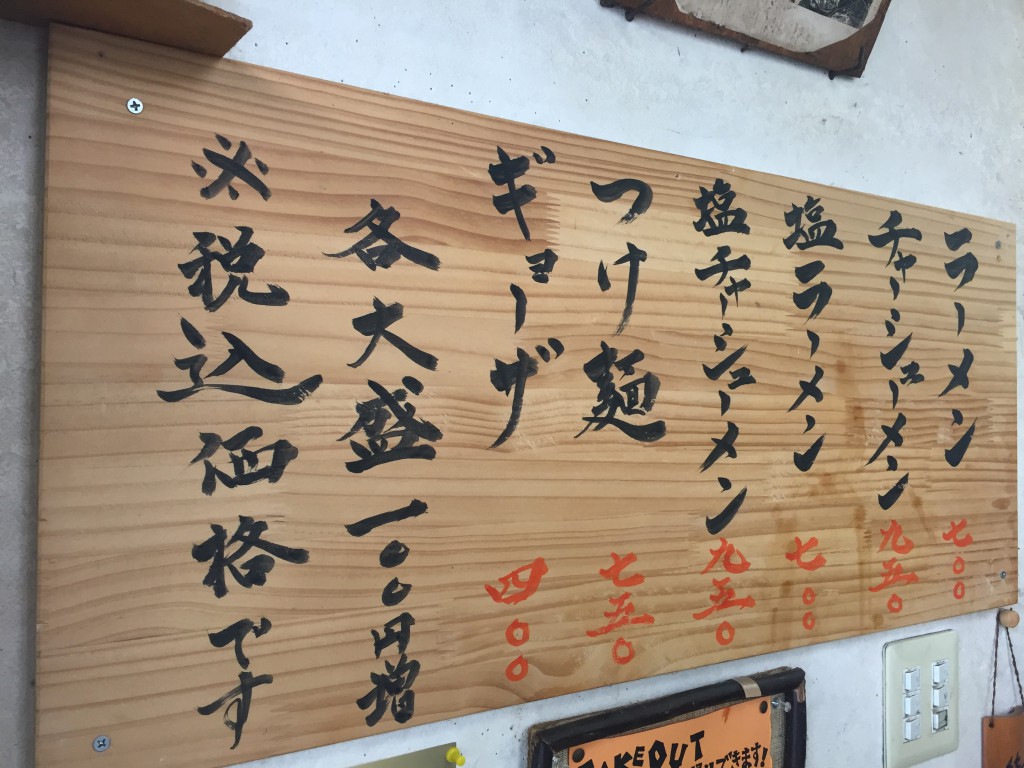 ラーメン 七〇〇
チャーシューメン 九五〇
塩ラーメン 七〇〇
塩チャーシューメン 九五〇
つけ麺 七五〇
ギョーザ 四〇〇
各大盛一〇〇円増
※税込価格です
TAKEOUT
できます!